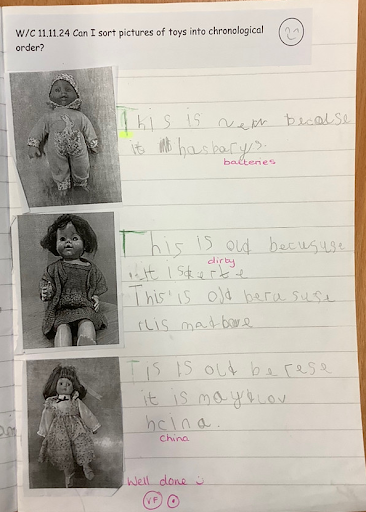 W/C 11.11.24 Can I sort pictures of toys into chronological
order?
This is new becalse
it hasbarys.
batteries
This is old becususe
dirby
This is old berasuse
it is
Tis is old berese
it is
hcina.
China
Well done
VF